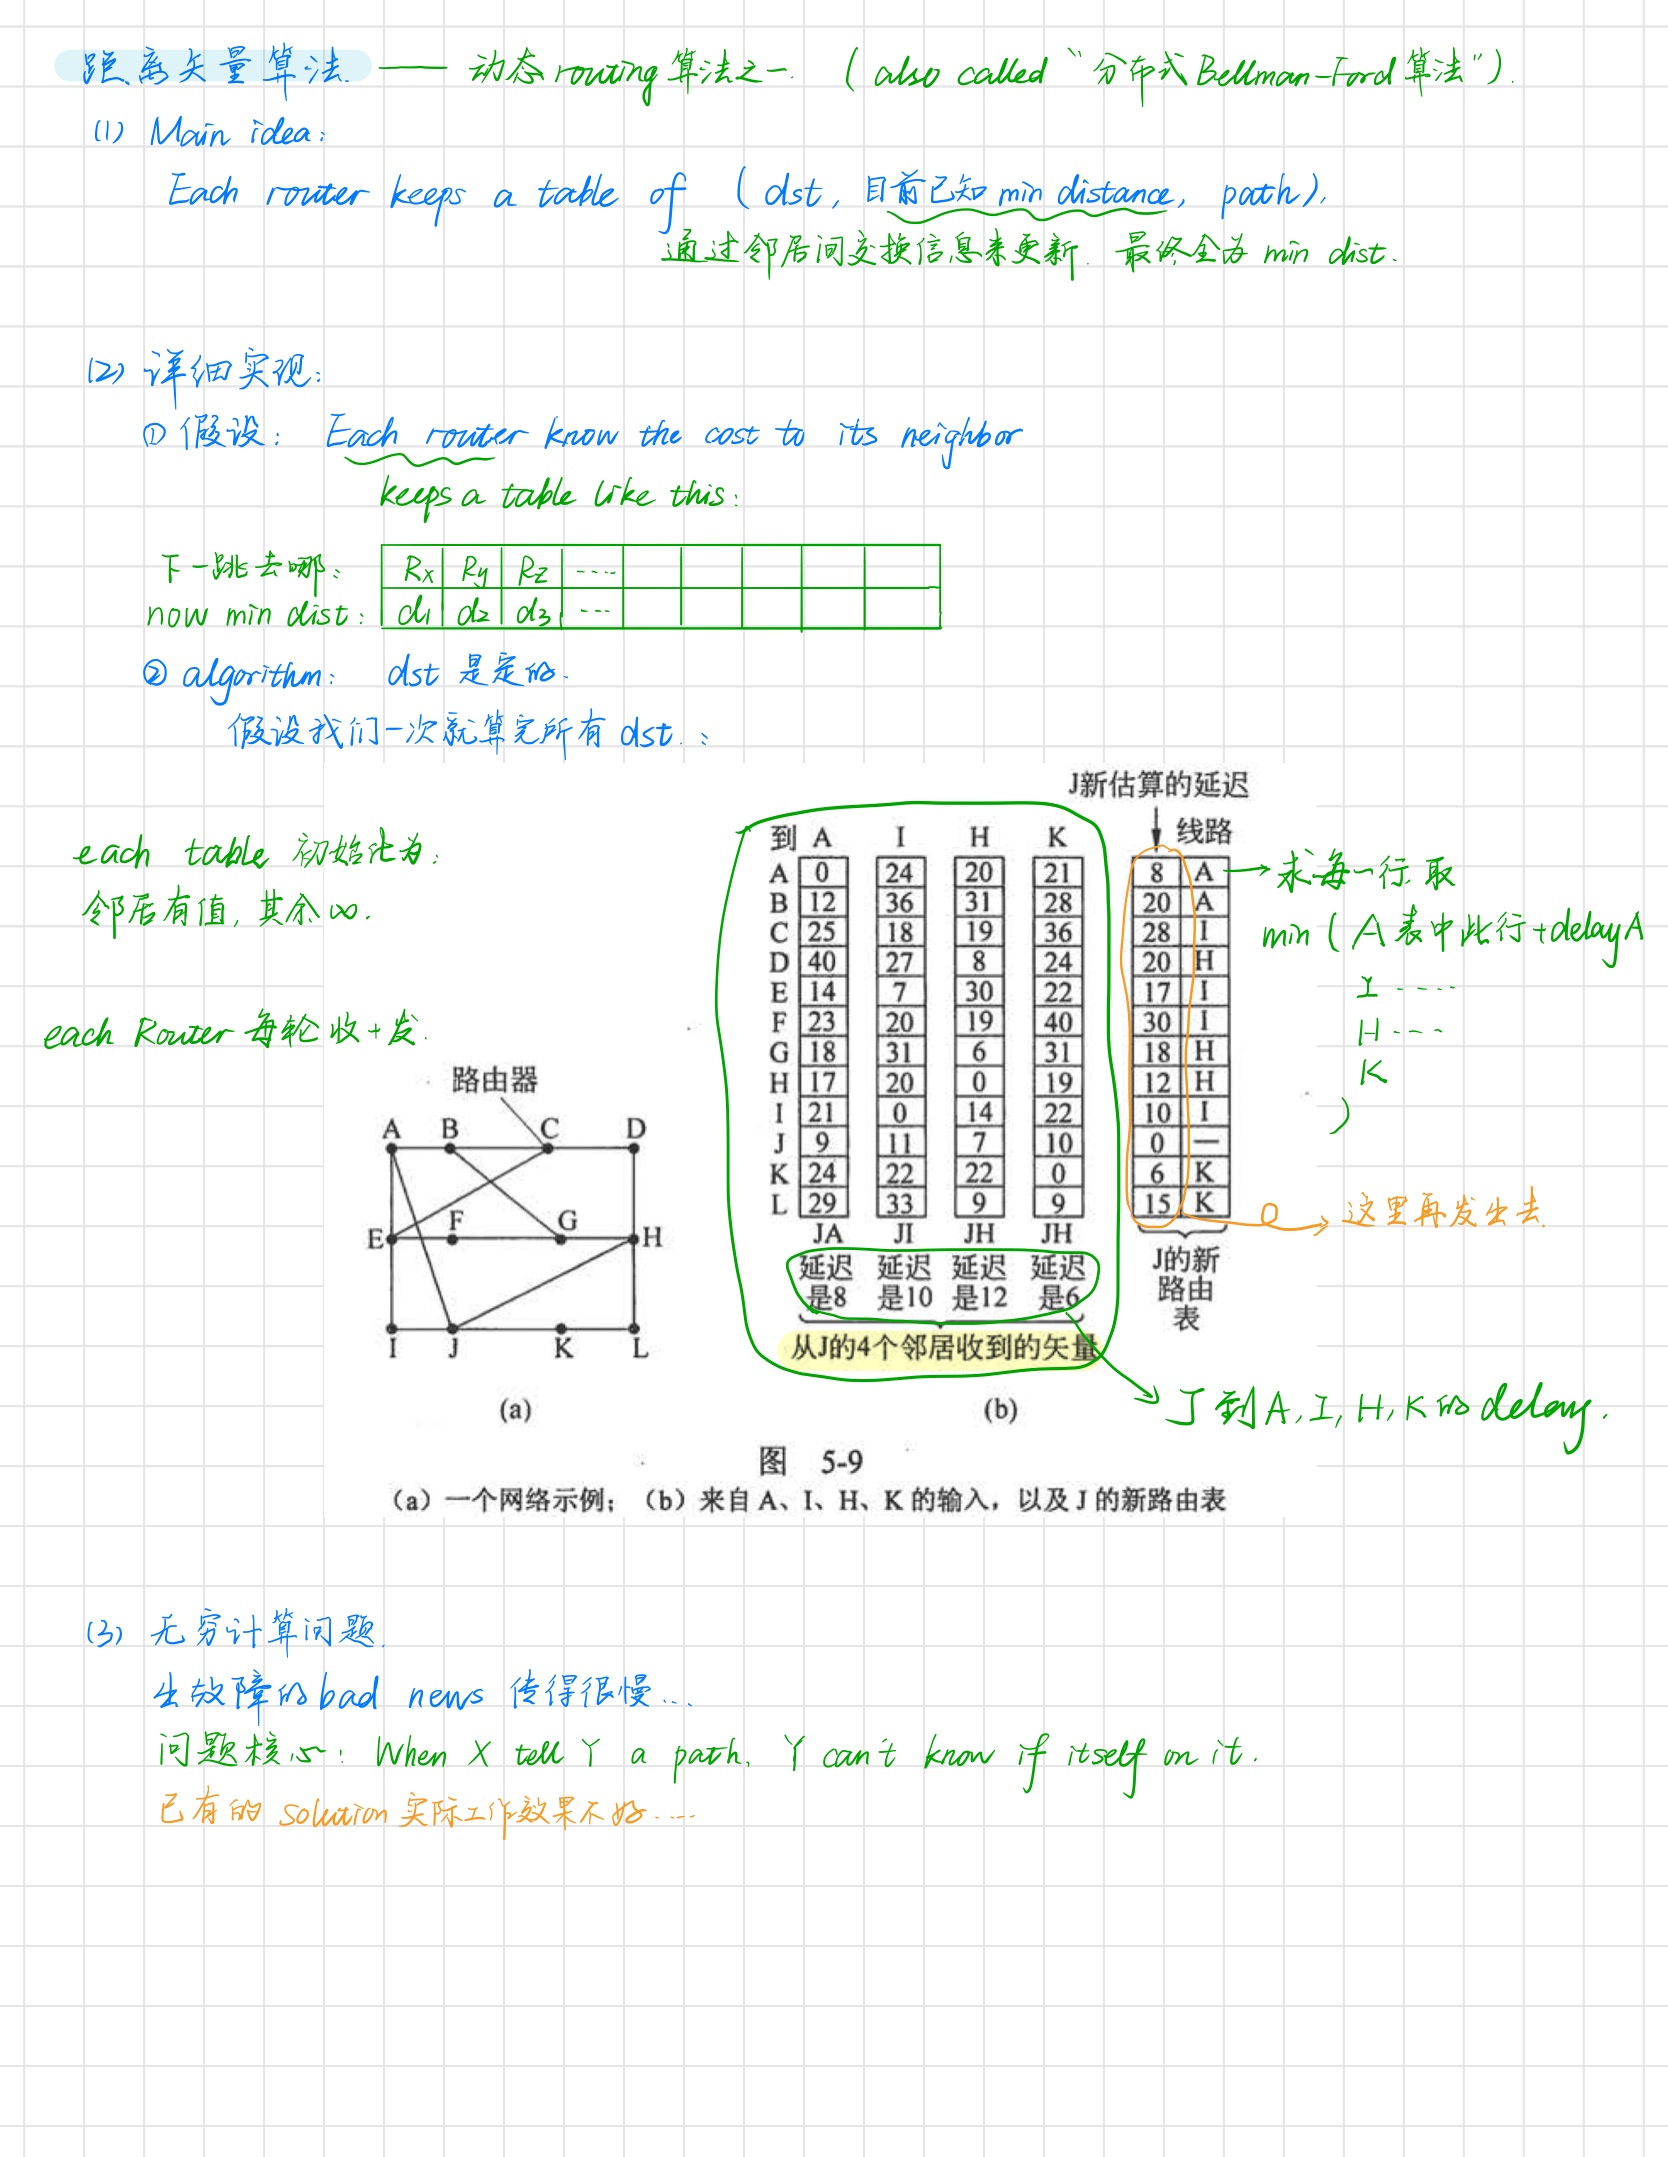 距离矢量算法 —— 动态routing算法之一. (also called “分布式Bellman-Ford算法”).
(1) Main idea:
Each router keeps a table of (dst, 目前已知min distance, path),
通过邻居间交换信息来更新. 最终全为 min dist.
(2) 详细实现:
① 假设: Each router know the cost to its neighbor
keeps a table like this:
下一跳去哪: Rx Ry Rz ....
now min dist: d1 d2 d3 ...
② algorithm: dst 是定的.
假设我们一次就算完所有 dst. :
each table 初始化为:
邻居有值, 其余∞.
each Router 每轮收+发.
路由器
A B C D
E F G H
I J K L
(a)
J新估算的延迟
到 A I H K 线路
A 0 24 20 21 8 A
B 12 36 31 28 20 A
C 25 18 19 36 28 I
D 40 27 8 24 20 H
E 14 7 30 22 17 I
F 23 20 19 40 30 I
G 18 31 6 31 18 H
H 17 20 0 19 12 H
I 21 0 14 22 10 I
J 9 11 7 10 0 —
K 24 22 22 0 6 K
L 29 33 9 9 15 K
JA JI JH JH
延迟 延迟 延迟 延迟
是8 是10 是12 是6
从J的4个邻居收到的矢量
J的新
路由
表
(b)
→ 求每一行取
min (A表中此行+delayA
I ....
H ...
K
)
→ 这里再发出去.
→ J到A, I, H, K的delay.
图 5-9
(a) 一个网络示例; (b) 来自 A、I、H、K 的输入，以及 J 的新路由表
(3) 无穷计算问题.
出故障的bad news 传得很慢...
问题核心: When X tell Y a path, Y can't know if itself on it.
已有的 solution 实际工作效果不好.....